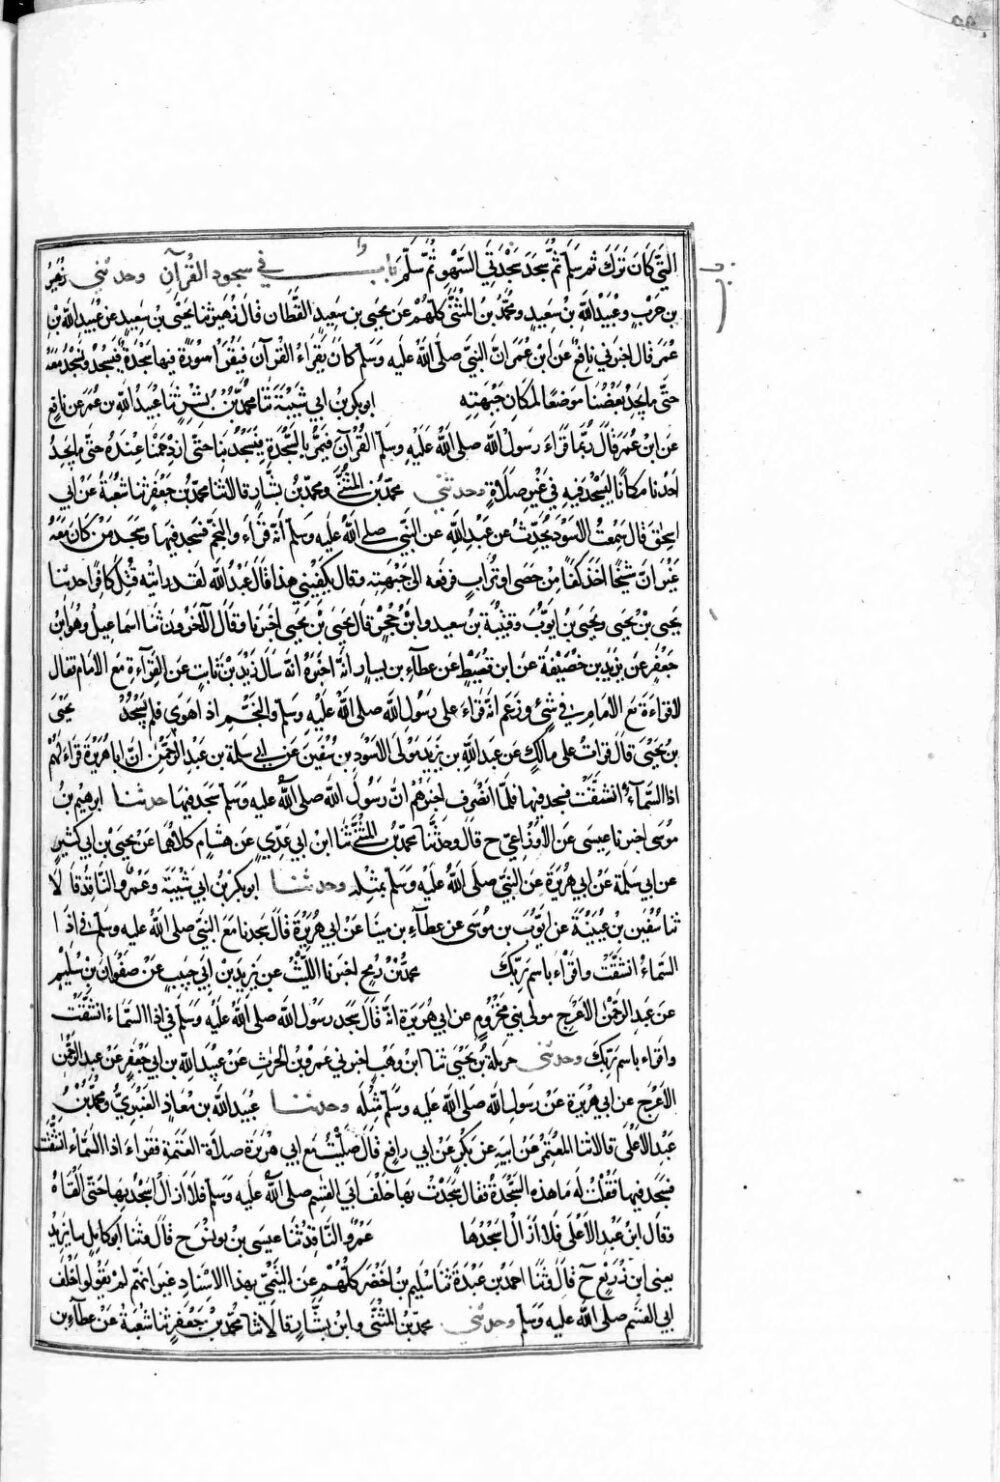 التي كان ترك ثم سلم ثم سجد سجدتي السهو ثم سلم باب في سجود القرآن وحدثني زهير
بن حرب وعبيد الله بن سعيد ومحمد بن المثنى كلهم عن يحيى بن سعيد القطان قال زهير ثنا يحيى بن سعيد عن عبيد الله بن
عمر قال اخبرني نافع عن ابن عمر ان النبي صلى الله عليه وسلم كان يقراء القرآن فيقرا سورة فيها سجدة فيسجد ونسجد معه
حتى ما يجد بعضنا موضعا لمكان جبهته ابو بكر بن ابي شيبة ثنا محمد بن بشر ثنا عبيد الله بن عمر عن نافع
عن ابن عمر قال ربما قراء رسول الله صلى الله عليه وسلم القرآن فيمر بالسجدة فيسجد بنا حتى ازدحمنا عنده حتى ما يجد
احدنا مكانا ليسجد فيه في غير صلاة وحدثني محمد بن المثنى ومحمد بن بشار قالا ثنا محمد بن جعفر ثنا شعبة عن ابي
اسحق قال سمعت الاسود يحدث عن عبد الله عن النبي صلى الله عليه وسلم انه قراء والنجم فسجد فيها وسجد من كان معه
غير ان شيخا اخذ كفا من حصى او تراب فرفعه الى جبهته وقال يكفيني هذا قال عبد الله لقد رايته قتل كافرا حدثنا
يحيى بن يحيى ويحيى بن ايوب وقتيبة بن سعيد وابن حجر قال يحيى بن يحيى اخبرنا وقال الآخرون ثنا اسماعيل وهو ابن
جعفر عن يزيد بن خصيفة عن ابن قسيط عن عطاء بن يسار انه اخبره انه سال زيد بن ثابت عن القراءة مع الامام فقال
لا قراءة مع الامام في شئ وزعم انه قراء على رسول الله صلى الله عليه وسلم والنجم اذا هوى فلم يسجد يحيى
بن يحيى قال قرات على مالك عن عبد الله بن يزيد مولى الاسود بن سفين عن ابي سلمة بن عبد الرحمن ان ابا هريرة قراء لهم
اذا السماء انشقت فسجد فيها فلما انصرف اخبرهم ان رسول الله صلى الله عليه وسلم سجد فيها حدثنا ابرهيم بن
موسى اخبرنا عيسى عن الاوزاعي ح قال وحدثنا محمد بن المثنى ثنا ابن ابي عدي عن هشام كلاهما عن يحيى بن ابي كثير
عن ابي سلمة عن ابي هريرة عن النبي صلى الله عليه وسلم بمثله وحدثنا ابو بكر بن ابي شيبة وعمرو الناقد قالا
ثنا سفين بن عيينة عن ايوب بن موسى عن عطاء بن مينا عن ابي هريرة قال سجدنا مع النبي صلى الله عليه وسلم في اذا
السماء انشقت واقراء باسم ربك محمد بن رمح اخبرنا الليث عن يزيد بن ابي حبيب عن صفوان بن سليم
عن عبد الرحمن الاعرج مولى بني مخزوم عن ابي هريرة انه قال سجد رسول الله صلى الله عليه وسلم في اذا السماء انشقت
واقراء باسم ربك وحدثني حرملة بن يحيى ثنا ابن وهب اخبرني عمرو بن الحرث عن عبيد الله بن ابي جعفر عن عبد الرحمن
الاعرج عن ابي هريرة عن رسول الله صلى الله عليه وسلم مثله وحدثنا عبيد الله بن معاذ العنبري ومحمد بن
عبد الاعلى قالا ثنا المعتمر عن ابيه عن بكر عن ابي رافع قال صليت مع ابي هريرة صلاة العتمة فقراء اذا السماء انشقت
فسجد فيها فقلت له ما هذه السجدة فقال سجدت بها خلف ابي القسم صلى الله عليه وسلم فلا ازال اسجد بها حتى القاه
وقال ابن عبد الاعلى فلا ازال اسجدها عمرو الناقد ثنا عيسى بن يونس ح قال وثنا ابو كامل ثنا يزيد
يعني ابن زريع ح قال وثنا احمد بن عبدة ثنا سليم بن اخضر كلهم عن التيمي بهذا الاسناد غير انهم لم يقولوا خلف
ابي القسم صلى الله عليه وسلم وحدثني محمد بن المثنى وابن بشار قالا ثنا محمد بن جعفر ثنا شعبة عن عطاء بن